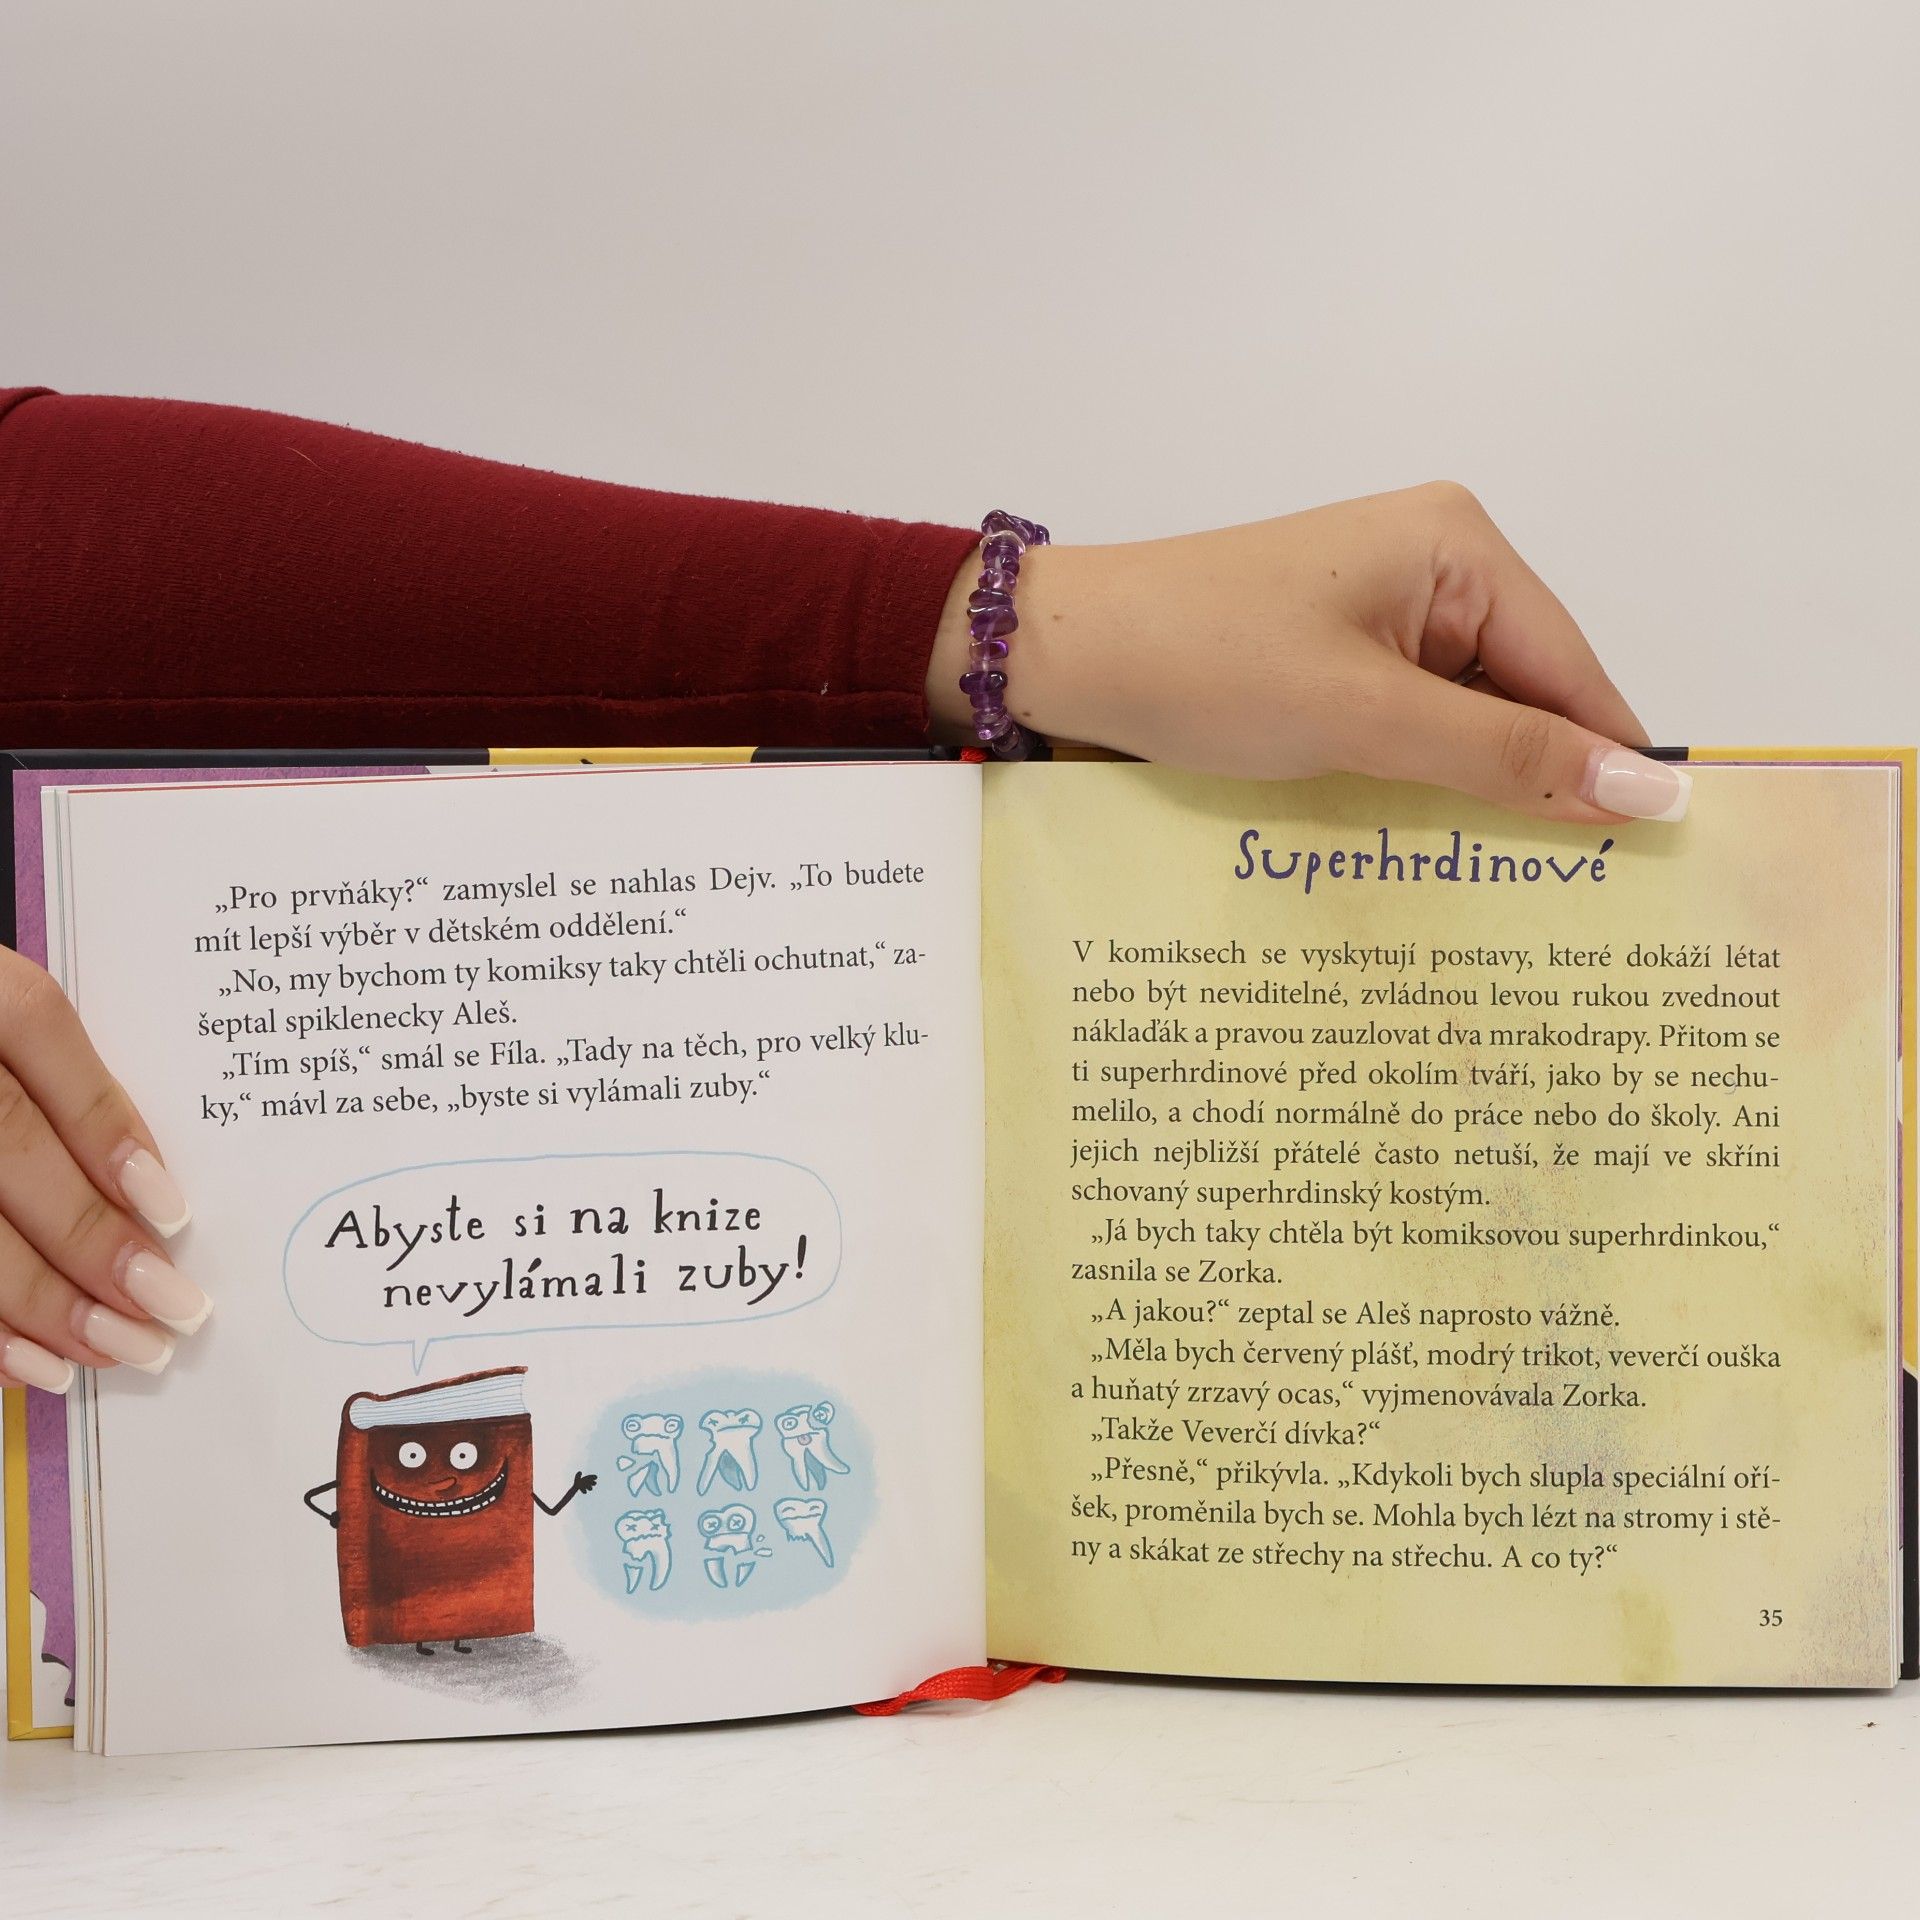 „Pro prvňáky?“ zamyslel se nahlas Dejv. „To budete
mít lepší výběr v dětském oddělení.“
„No, my bychom ty komiksy taky chtěli ochutnat,“ za-
šeptal spiklenecky Aleš.
„Tím spíš,“ smál se Fíla. „Tady na těch, pro velký klu-
ky,“ mávl za sebe, „byste si vylámali zuby.“
Abyste si na knize
nevylámali zuby!
Superhrdinové
V komiksech se vyskytují postavy, které dokáží létat
nebo být neviditelné, zvládnou levou rukou zvednout
náklaďák a pravou zauzlovat dva mrakodrapy. Přitom se
ti superhrdinové před okolím tváří, jako by se nechu-
melilo, a chodí normálně do práce nebo do školy. Ani
jejich nejbližší přátelé často netuší, že mají ve skříni
schovaný superhrdinský kostým.
„Já bych taky chtěla být komiksovou superhrdinkou,“
zasnila se Zorka.
„A jakou?“ zeptal se Aleš naprosto vážně.
„Měla bych červený plášť, modrý trikot, veverčí ouška
a huňatý zrzavý ocas,“ vyjmenovávala Zorka.
„Takže Veverčí dívka?“
„Přesně,“ přikývla. „Kdykoli bych slupla speciální oří-
šek, proměnila bych se. Mohla bych lézt na stromy i stě-
ny a skákat ze střechy na střechu. A co ty?“
35